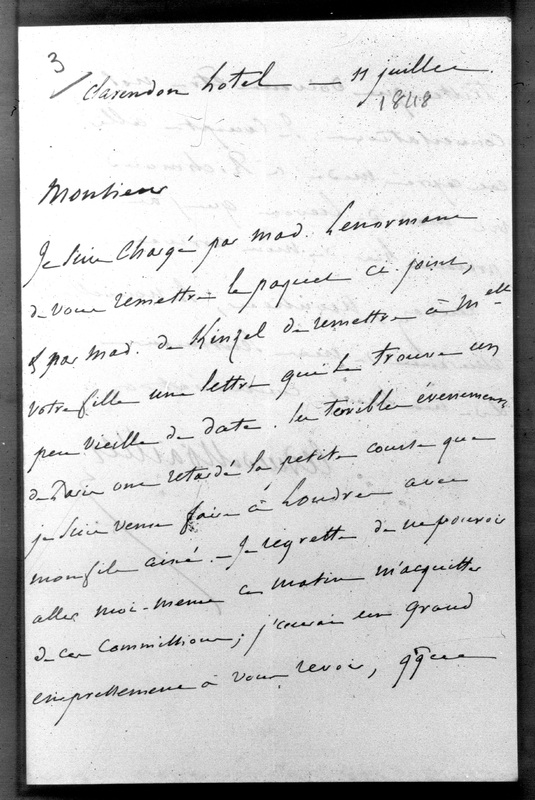 3
Clarendon hotel – 11 juillet
1848
Monsieur
Je suis chargé par mad. Lenormant
de vous remettre le paquet ci joint,
& par mad. de de remettre à Melle
votre fille une lettre qui se trouve un
peu vieille de date. les terribles évènemens
de Paris ont retardé la petite course que
je suis venu faire à Londres avec
mon fils ainé. – Je regrette de ne pouvoir
aller moi-meme ce matin m'acquitter
de ces Commissions; j'aurai un grand
empressement à vous revoir,